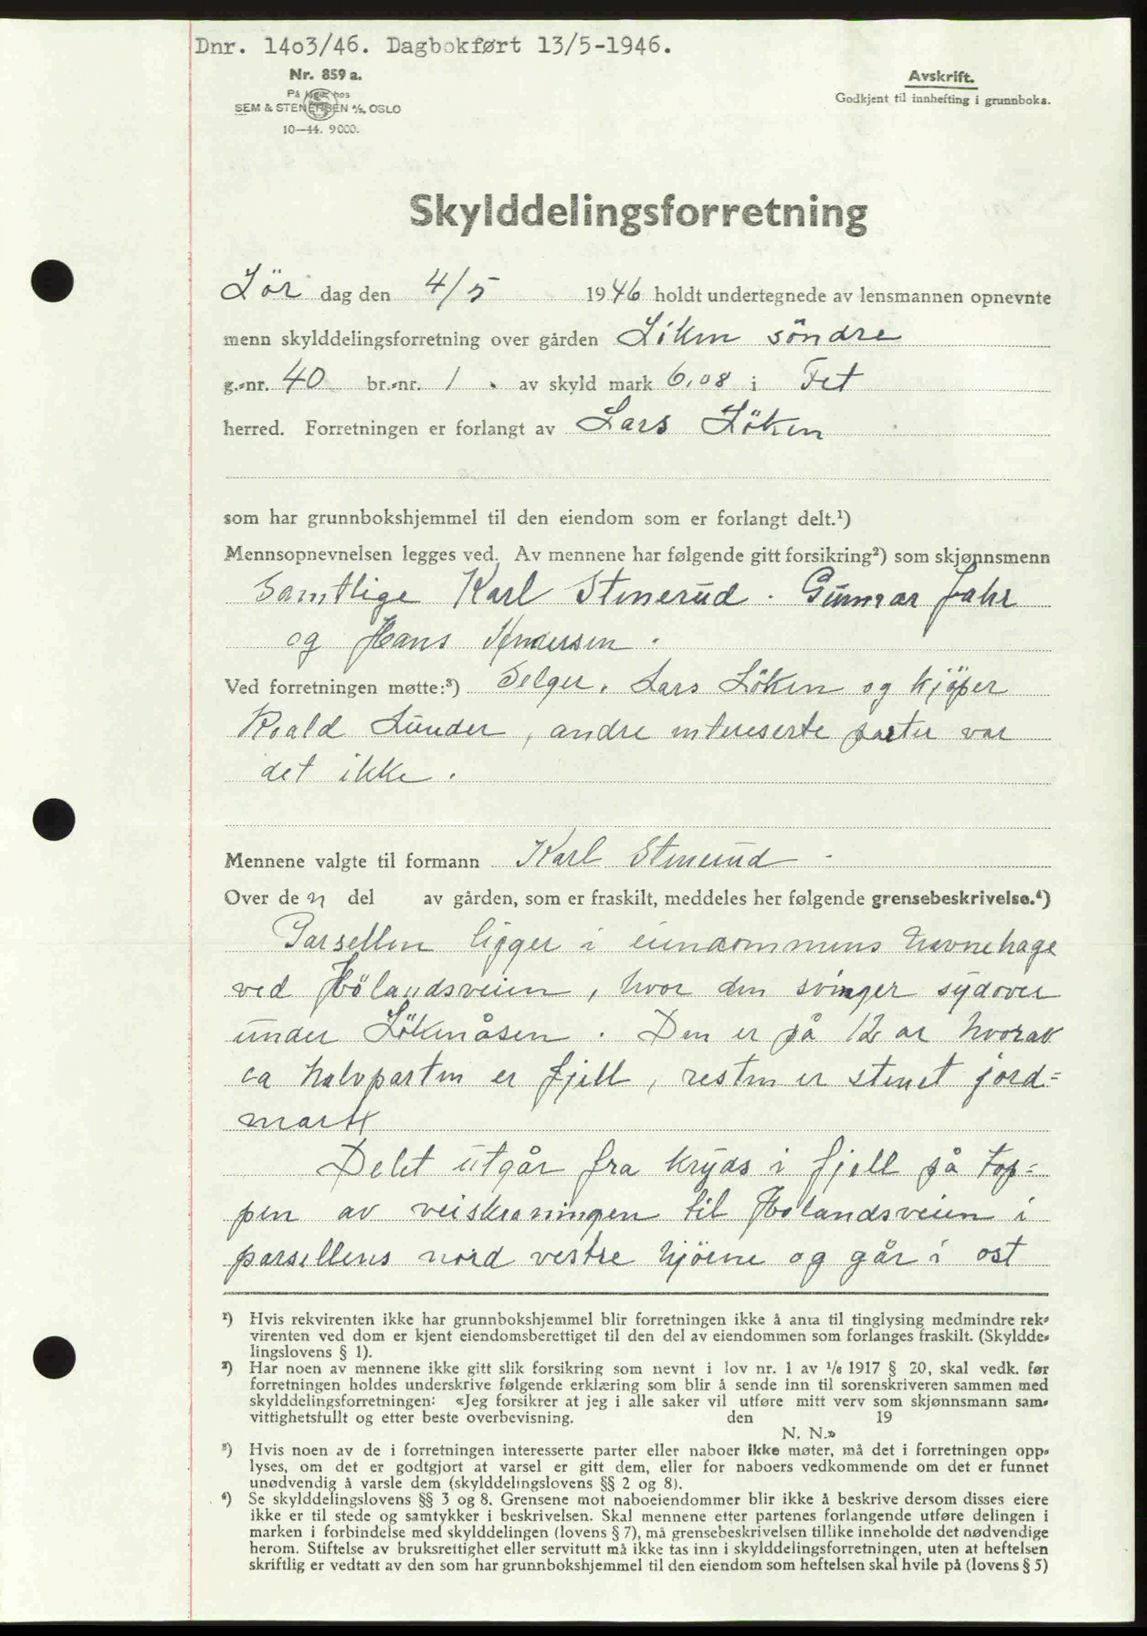 Dnr. 1403/46. Dagbokført 13/5-1946.
Nr. 859 a.
På lager hos
SEM & STENERSEN A/S, OSLO
10—44. 9000.
Avskrift.
Godkjent til innhefting i grunnboka.
Skylddelingsforretning
Lör dag den 4/5 1946 holdt undertegnede av lensmannen opnevnte
menn skylddelingsforretning over gården Löken söndre
g.-nr. 40 br.-nr. 1 . av skyld mark 6,08 i Fet
herred. Forretningen er forlangt av Lars Löken
som har grunnbokshjemmel til den eiendom som er forlangt delt.¹)
Mennsopnevnelsen legges ved. Av mennene har følgende gitt forsikring²) som skjønnsmenn
Samtlige Karl Stenerud. Gunnar Jahr
og Hans Andersen.
Ved forretningen møtte:³) Selger. Lars Löken og kjöper
Roald Lunder, andre intereserte parter var
det ikke.
Mennene valgte til formann Karl Stenerud.
Over de n del av gården, som er fraskilt, meddeles her følgende grensebeskrivelse.⁴)
Parsellen ligger i eiendommens havnehage
ved Hölandsveien, hvor den svinger sydover
under Lökenåsen. Den er på 12 ar hvorav
ca halvparten er fjell, resten er stenet jord=
mark
Delet utgår fra kryds i fjell på top=
pen av veiskraningen til Hölandsveien i
parsellens nord vestre hjörne og går i ost
¹) Hvis rekvirenten ikke har grunnbokshjemmel blir forretningen ikke å anta til tinglysing medmindre rek-
virenten ved dom er kjent eiendomsberettiget til den del av eiendommen som forlanges fraskilt. (Skyldde-
lingslovens § 1).
²) Har noen av mennene ikke gitt slik forsikring som nevnt i lov nr. 1 av 1/6 1917 § 20, skal vedk. før
forretningen holdes underskrive følgende erklæring som blir å sende inn til sorenskriveren sammen med
skylddelingsforretningen: «Jeg forsikrer at jeg i alle saker vil utføre mitt verv som skjønnsmann sam-
vittighetsfullt og etter beste overbevisning. den 19
N. N.»
³) Hvis noen av de i forretningen interesserte parter eller naboer ikke møter, må det i forretningen opp-
lyses, om det er godtgjort at varsel er gitt dem, eller for naboers vedkommende om det er funnet
unødvendig å varsle dem (skylddelingslovens §§ 2 og 8).
⁴) Se skylddelingslovens §§ 3 og 8. Grensene mot naboeiendommer blir ikke å beskrive dersom disses eiere
ikke er til stede og samtykker i beskrivelsen. Skal mennene etter partenes forlangende utføre delingen i
marken i forbindelse med skylddelingen (lovens § 7), må grensebeskrivelsen tillike inneholde det nødvendige
herom. Stiftelse av bruksrettighet eller servitutt må ikke tas inn i skylddelingsforretningen, uten at heftelsen
skriftlig er vedtatt av den som har grunnbokshjemmel til den eiendom som heftelsen skal hvile på (lovens § 5)